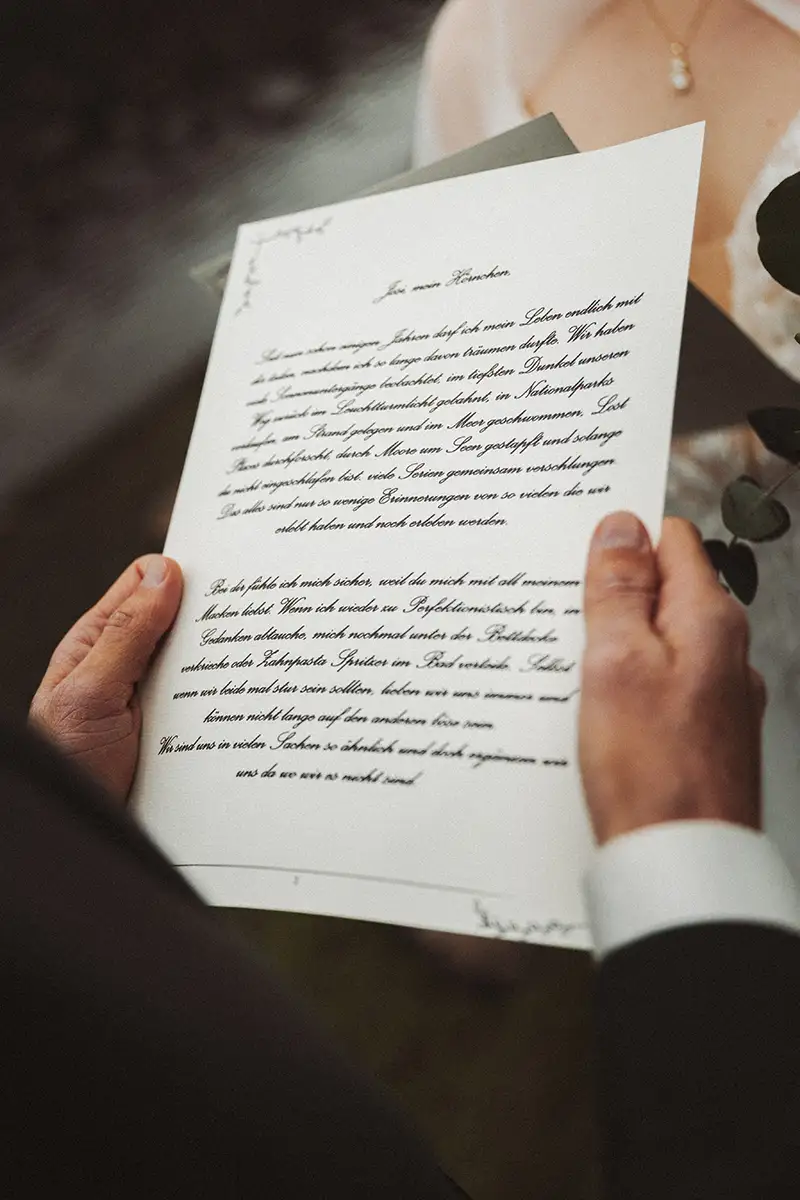 Josi, mein Hörnchen,
Seit nun schon einigen Jahren darf ich mein Leben endlich mit
dir teilen, nachdem ich so lange davon träumen durfte. Wir haben
viele Sonnenuntergänge beobachtet, im tiefsten Dunkel unseren
Weg zurück im Leuchtturmlicht gebahnt, in Nationalparks
verlaufen, am Strand gelegen und im Meer geschwommen, Lost
Places durchforscht, durch Moore um Seen gestapft und solange
du nicht eingeschlafen bist, viele Serien gemeinsam verschlungen.
Das alles sind nur so wenige Erinnerungen von so vielen die wir
erlebt haben und noch erleben werden.
Bei dir fühle ich mich sicher, weil du mich mit all meinem
Macken liebst. Wenn ich wieder zu Perfektionistisch bin, in
Gedanken abtauche, mich nochmal unter der Bettdecke
verkrieche oder Zahnpasta Spritzer im Bad verteile. Selbst
wenn wir beide mal stur sein sollten, lieben wir uns immer und
können nicht lange auf den anderen böse sein.
Wir sind uns in vielen Sachen so ähnlich und doch ergänzen wir
uns da wo wir es nicht sind.